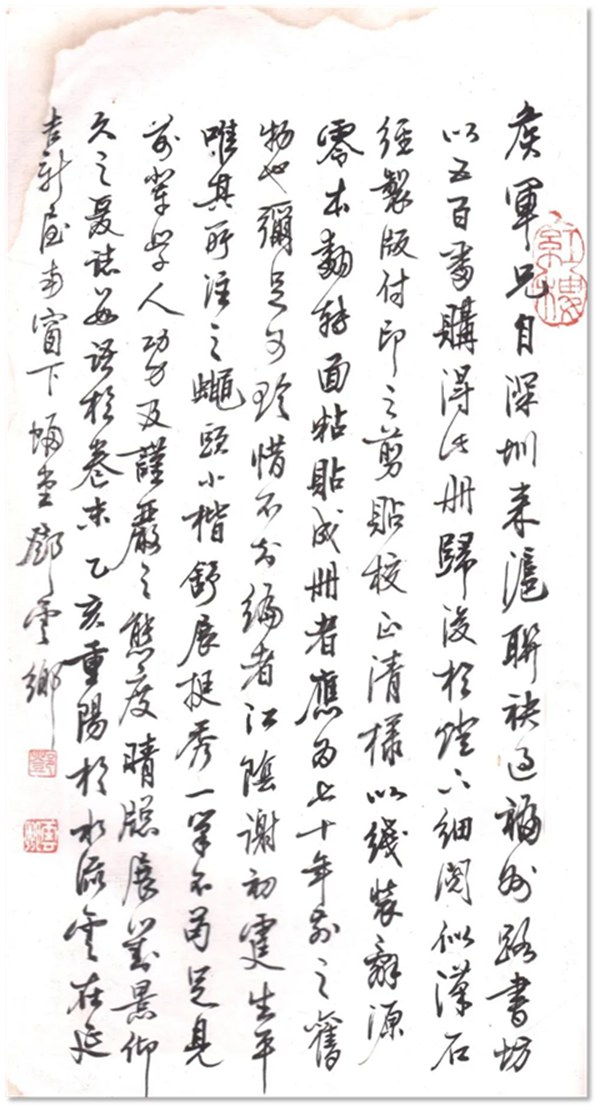 侯軍兄自深圳來滬聯袂過福州路書坊
以五百番購得此册歸後於燈下細閱似漢石
經製版付印之剪貼校正清樣以綫裝辭源
零本翻轉面粘貼成册者應爲七十年前之舊
物也彌足可珍惜不知編者江陰謝初霆生平
唯其所注之蠅頭小楷舒展挺秀一筆不苟足見
前輩學人功力及謹嚴之態度晴窗展對景仰
久之爰誌數語於卷末乙亥重陽於水流雲在延
吉新屋南窗下蝸堂鄧雲鄉
紅樓
鄧
雲鄉